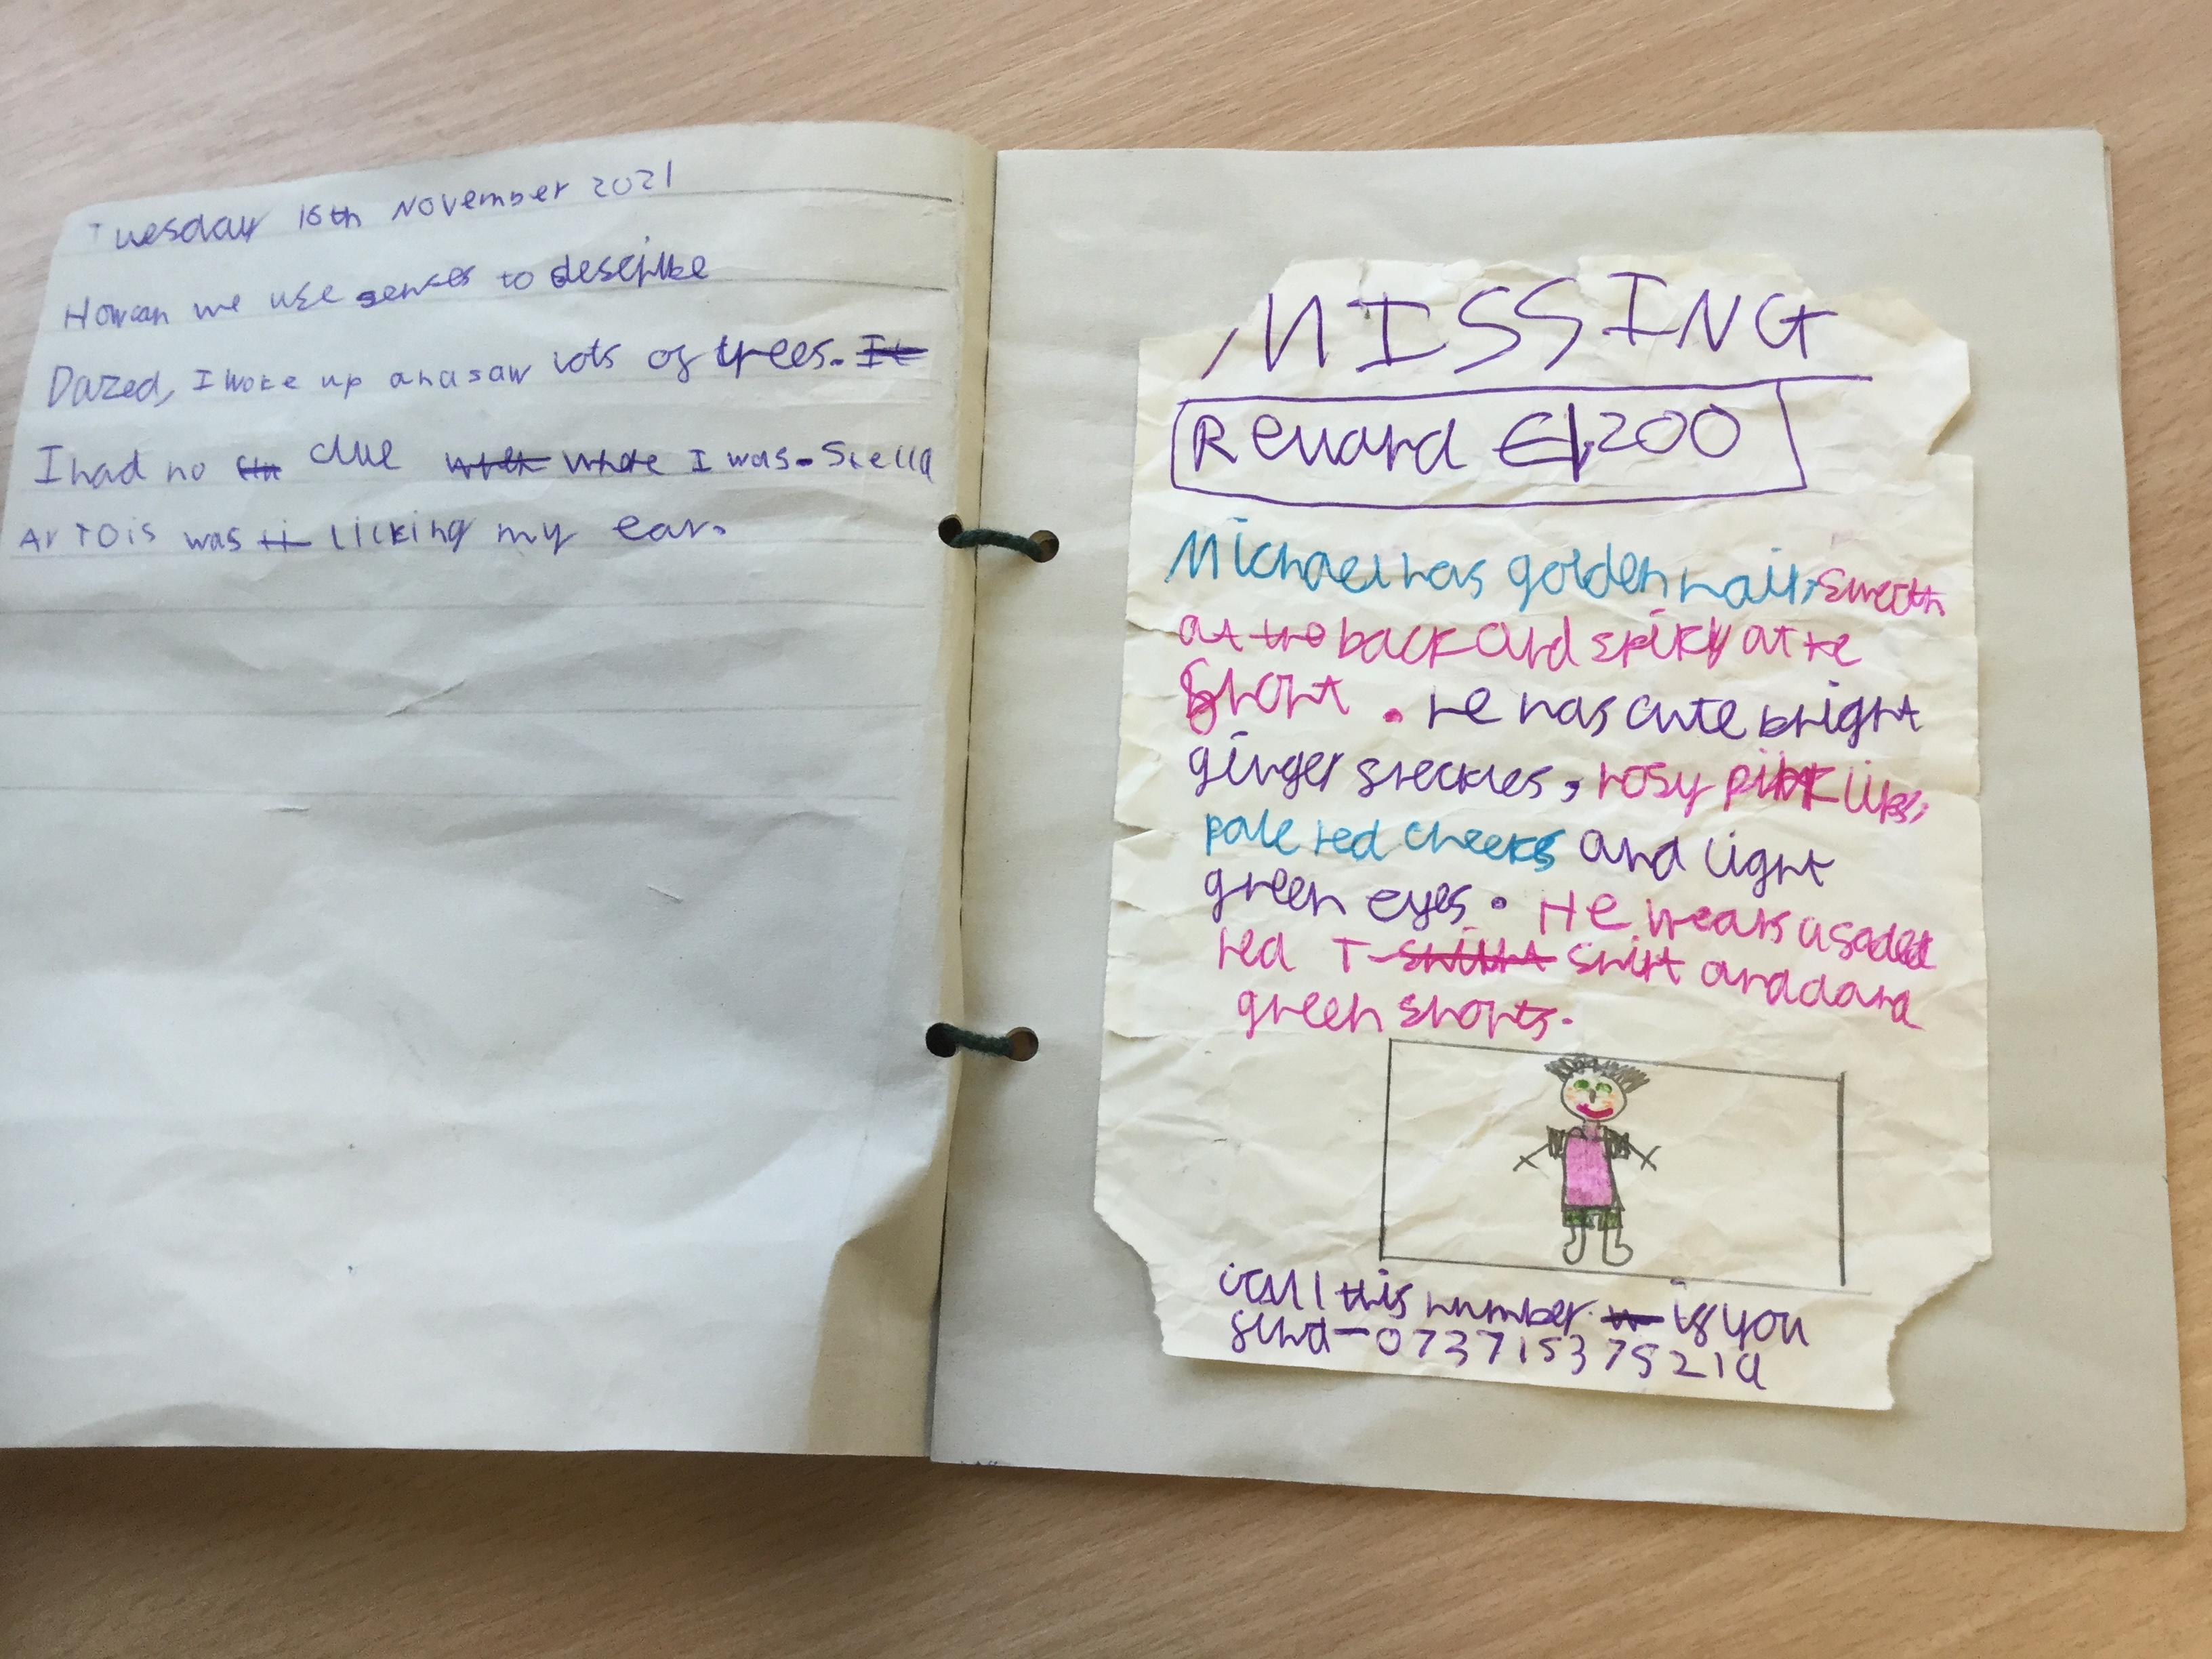 Tuesday 16th November 2021
How can we use senses to descripe
Dazed, I woke up and a saw lots of trees. It
I had no clue where I was. Stella
Artois was licking my ear.
MISSING
Reward £1,200
Michael has golden hair, smooth
at the back and spiky at te
front. He has cute bright
ginger freckles, rosy pink lips,
pale red cheeks and light
green eyes. He wears a faded
red T- shirt and dard
green shorts.
call this number if you
find - 07371537521